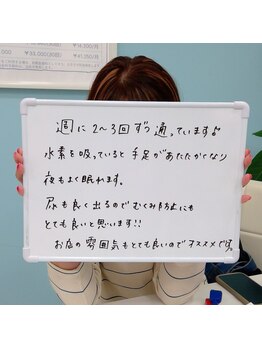 週に2~3回ずつ通っています♪
水素を吸っていると手足があたたかくなり
夜もよく眠れます。
尿も良く出るのでむくみ防止にも
とても良いと思います!!
お店の雰囲気もとても良いのでオススメです。